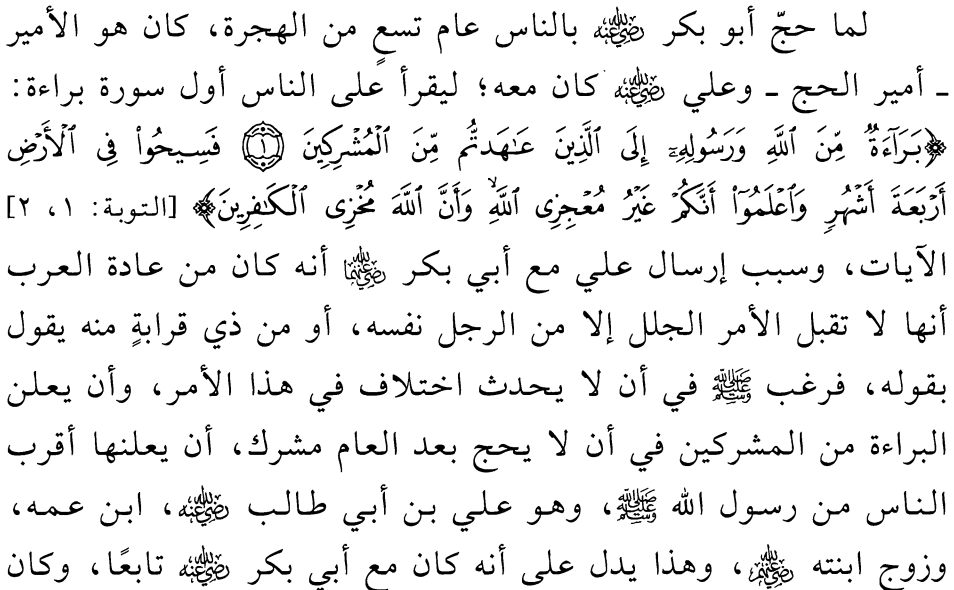 لما حجّ أبو بكر رضي الله عنه بالناس عام تسعٍ من الهجرة، كان هو الأمير
ـ أمير الحج ـ وعلي رضي الله عنه كان معه؛ ليقرأ على الناس أول سورة براءة:
﴿بَرَآءَةٌ مِّنَ ٱللَّهِ وَرَسُولِهِۦٓ إِلَى ٱلَّذِينَ عَـٰهَدتُّم مِّنَ ٱلْمُشْرِكِينَ ۝١ فَسِيحُوا۟ فِى ٱلْأَرْضِ
أَرْبَعَةَ أَشْهُرٍ وَٱعْلَمُوٓا۟ أَنَّكُمْ غَيْرُ مُعْجِزِى ٱللَّهِ ۙ وَأَنَّ ٱللَّهَ مُخْزِى ٱلْكَـٰفِرِينَ﴾ [التوبة: ١، ٢]
الآيات، وسبب إرسال علي مع أبي بكر رضي الله عنهما أنه كان من عادة العرب
أنها لا تقبل الأمر الجلل إلا من الرجل نفسه، أو من ذي قرابةٍ منه يقول
بقوله، فرغب ﷺ في أن لا يحدث اختلاف في هذا الأمر، وأن يعلن
البراءة من المشركين في أن لا يحج بعد العام مشرك، أن يعلنها أقرب
الناس من رسول الله ﷺ، وهو علي بن أبي طالب رضي الله عنه، ابن عمه،
وزوج ابنته رضي الله عنهم، وهذا يدل على أنه كان مع أبي بكر رضي الله عنه تابعًا، وكان